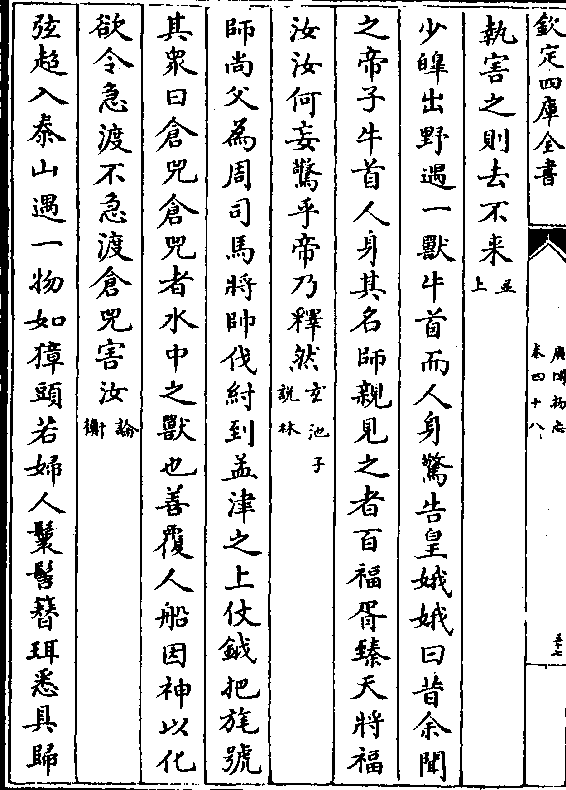 欽定四庫全書
廣博物志
卷四十八
執害之則去不來並上
少皞出野遇一獸牛首而人身驚告皇娥娥曰昔余聞
之帝子牛首人身其名師親見之者百福胥臻天將福
汝汝何妄驚乎帝乃釋然玄池子說林
師尚父為周司馬將帥伐紂到孟津之上仗鉞把旄號
其衆曰倉兕倉兕者水中之獸也善覆人船因神以化
欲令急渡不急渡倉兕害汝論衡
弦超入泰山遇一物如獐頭若婦人鬟髻簪珥悉具歸